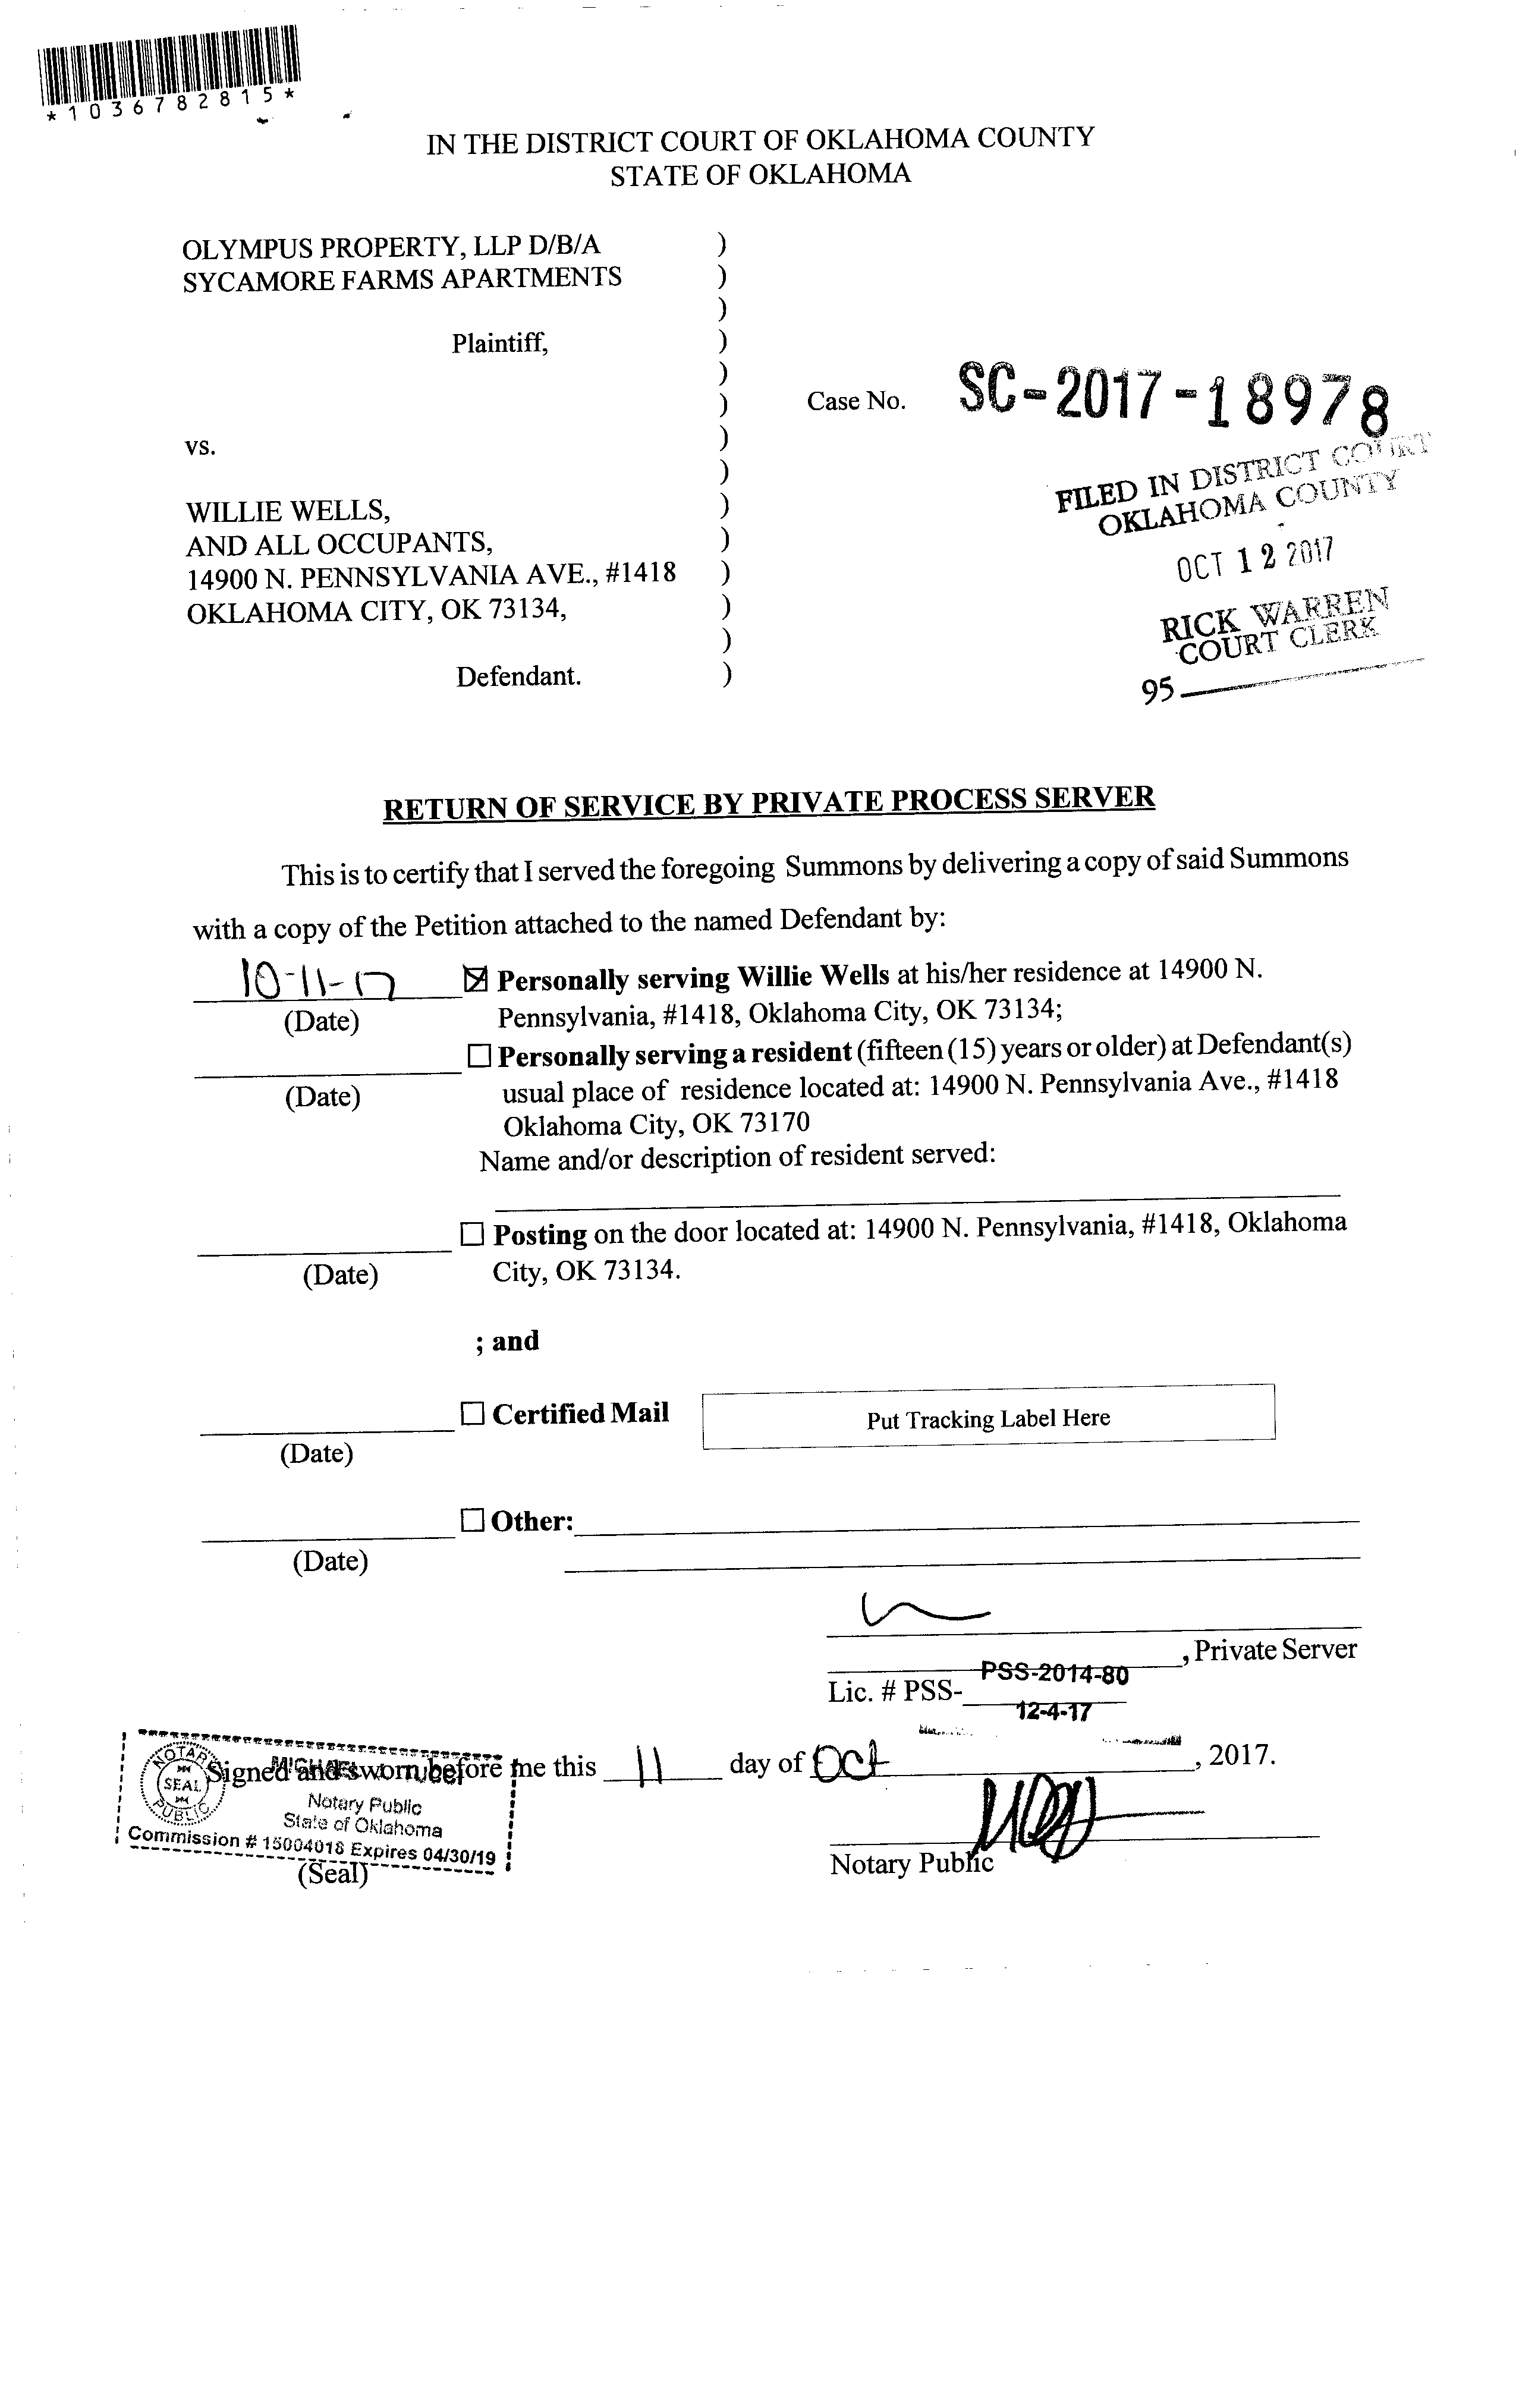 *1036782815*
IN THE DISTRICT COURT OF OKLAHOMA COUNTY
STATE OF OKLAHOMA
OLYMPUS PROPERTY, LLP D/B/A )
SYCAMORE FARMS APARTMENTS )
)
Plaintiff, )
)
) Case No. SC-2017-18978
vs. )
)
WILLIE WELLS, )
AND ALL OCCUPANTS, )
14900 N. PENNSYLVANIA AVE., #1418 )
OKLAHOMA CITY, OK 73134, )
)
Defendant. )
FILED IN DISTRICT COURT
OKLAHOMA COUNTY
OCT 12 2017
RICK WARREN
COURT CLERK
95
RETURN OF SERVICE BY PRIVATE PROCESS SERVER
This is to certify that I served the foregoing Summons by delivering a copy of said Summons
with a copy of the Petition attached to the named Defendant by:
10-11-17 ☒ Personally serving Willie Wells at his/her residence at 14900 N.
(Date) Pennsylvania, #1418, Oklahoma City, OK 73134;
☐ Personally serving a resident (fifteen (15) years or older) at Defendant(s)
(Date) usual place of residence located at: 14900 N. Pennsylvania Ave., #1418
Oklahoma City, OK 73170
Name and/or description of resident served:
☐ Posting on the door located at: 14900 N. Pennsylvania, #1418, Oklahoma
(Date) City, OK 73134.
; and
☐ Certified Mail Put Tracking Label Here
(Date)
☐ Other:
(Date)
, Private Server
PSS-2014-80
Lic. # PSS-
12-4-17
Signed and sworn before me this 11 day of Oct, 2017.
NOTARY PUBLIC
SEAL
Notary Public
State of Oklahoma
Commission # 15004018 Expires 04/30/19
(Seal)
Notary Public